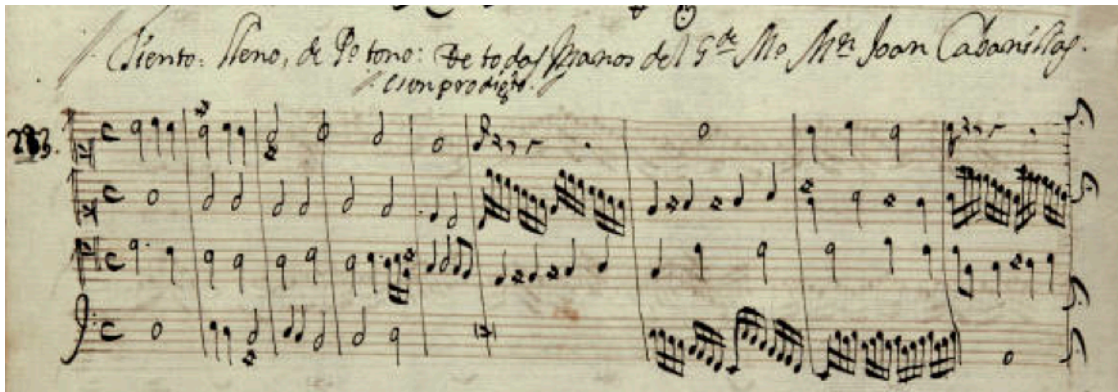 Tiento: lleno, de Po tono: De todas manos del Gde Mo Mn Joan Cabanillas.
es un prodigio.
283.